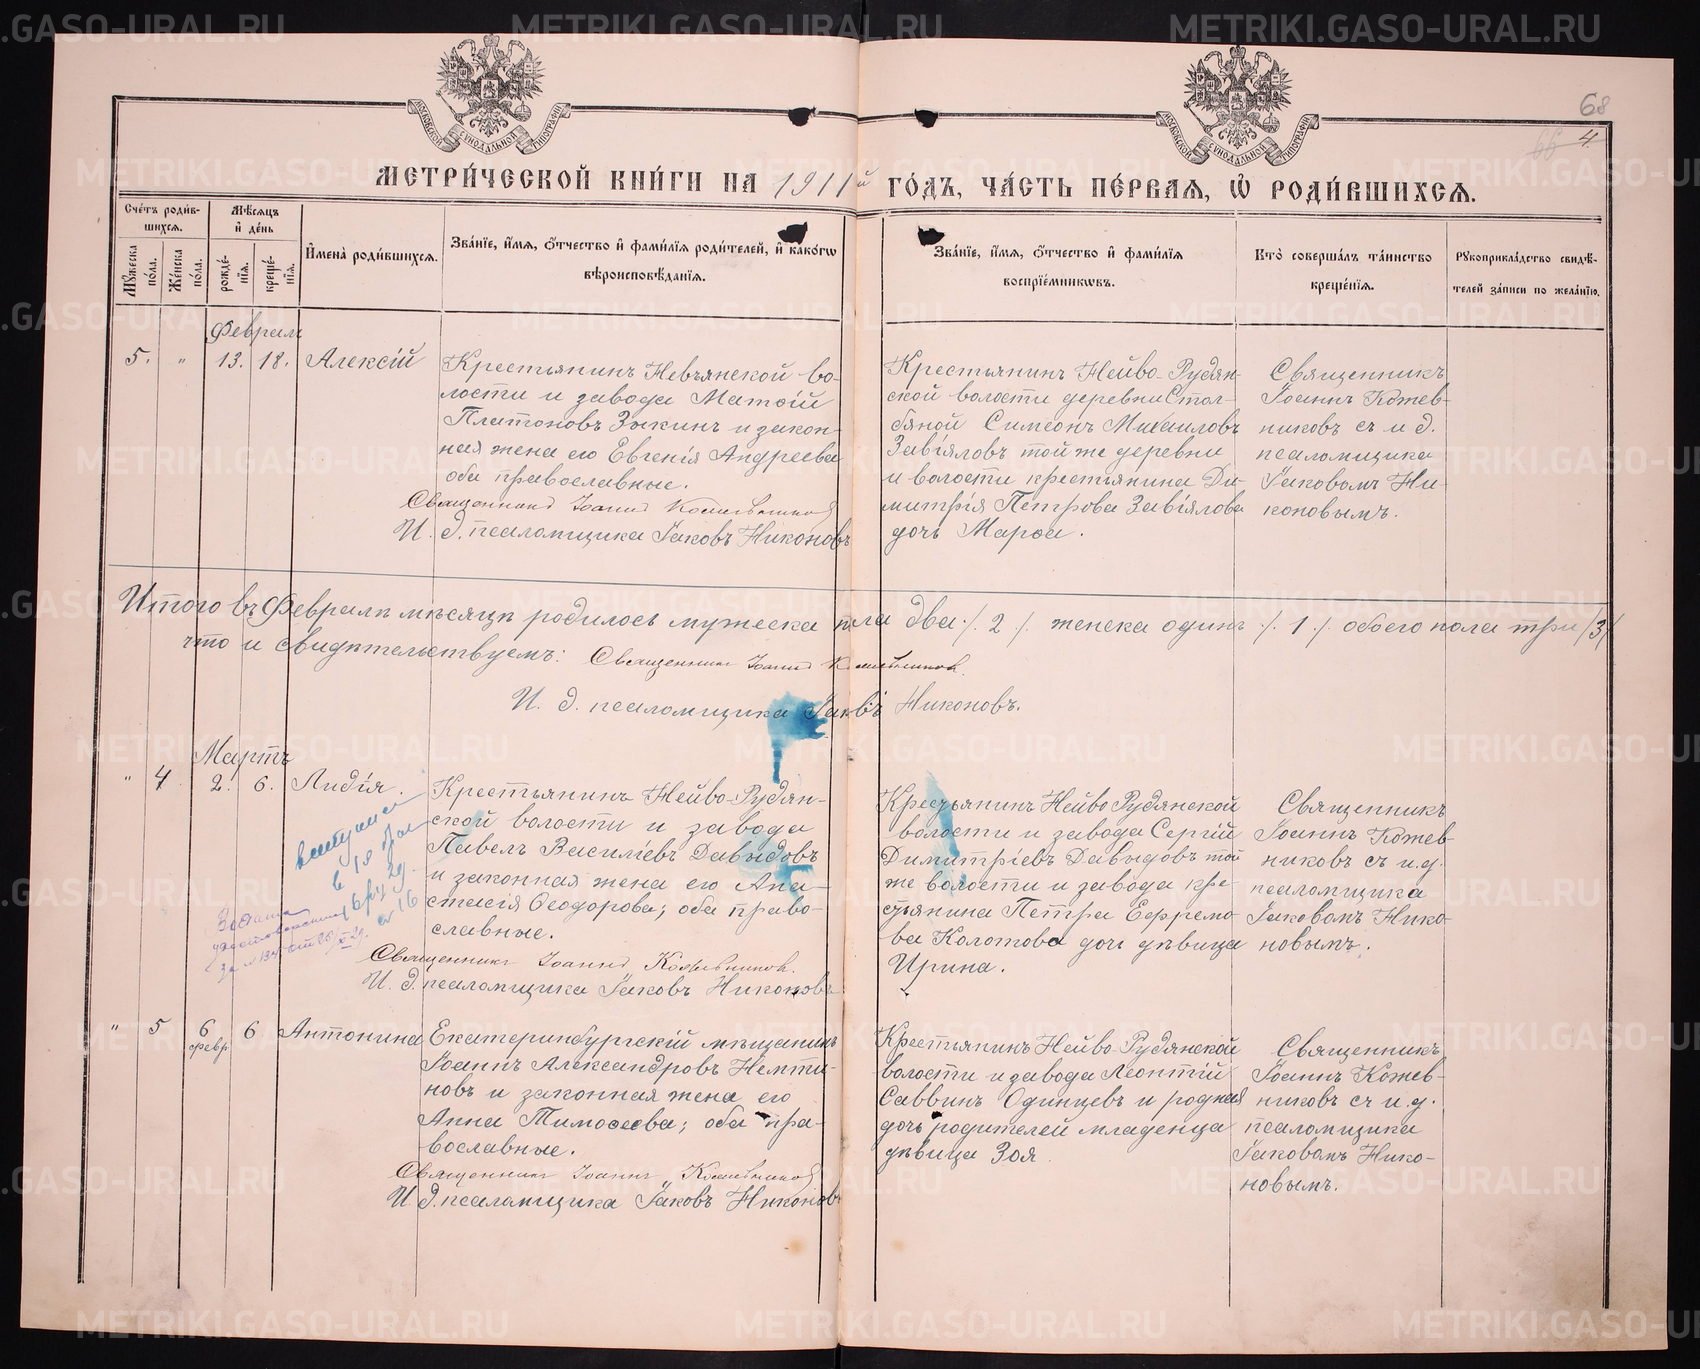 METRIKI.GASO-URAL.RU
МОСКОВСКОЙ СѴНОДАЛЬНОЙ ТИПОГРАФІИ
МОСКОВСКОЙ СѴНОДАЛЬНОЙ ТИПОГРАФІИ
68
66 4
МЕТРИ́ЧЕСКОЙ КНИ́ГИ НА 1911й ГО́ДЪ, ЧА́СТЬ ПЕ́РВАЯ, Ѡ РОДИ́ВШИХСЯ.
Сче́тъ роди́вшихся.
Мꙋ́жеска по́ла.
Же́нска по́ла.
Мѣ́сяцъ и҆ де́нь
рожде́нїя.
креще́нїя.
И҆мена̀ роди́вшихся.
Зва́нїе, и҆́мя, ѻ҆́тчество и҆ фами́лїя роди́телей, и҆ како́гѡ
вѣроисповѣ́данїя.
Зва́нїе, и҆́мя, ѻ҆́тчество и҆ фами́лїя
воспрїе́мникѡвъ.
Кто̀ соверша́лъ та́инство
креще́нїя.
Рꙋкоприкла́дство свидѣ́-
телей за́писи по жела́нїю.
Февраля
5. " 13. 18. Алексій
Крестьянинъ Невьянской во-
лости и завода Матѳій
Платоновъ Зыкинъ и закон-
ная жена его Евгенія Андреева
оба православные.
Священникъ Іоаннъ Кожевниковъ
И. д. псаломщика Іаковъ Никоновъ
Крестьянинъ Нейво-Рудян-
ской волости деревни Стол-
бяной Симеонъ Михаиловъ
Завіяловъ той же деревни
и волости крестьянина Ди-
митрія Петрова Завіялова
дочь Марѳа.
Священникъ
Іоаннъ Кожев-
никовъ съ и. д.
псаломщика
Іаковомъ Ни-
коновымъ.
Итого въ Февралѣ мѣсяцѣ родилось мужеска пола два ./. 2 ./. женска одинъ ./. 1 ./. обоего пола три /3/
что и свидѣтельствуемъ: Священникъ Іоаннъ Кожевниковъ.
И. д. псаломщика Іаковъ Никоновъ.
Мартъ
" 4 2. 6. Лидія.
Крестьянинъ Нейво-Рудян-
ской волости и завода
Павелъ Василіевъ Давыдовъ
и законная жена его Ана-
стасія Ѳеодорова; оба право-
славные.
Священникъ Іоаннъ Кожевниковъ.
И. д. псаломщика Іаковъ Никоновъ
Крестьянинъ Нейво Рудянской
волости и завода Сергій
Димитріевъ Давыдовъ той
же волости и завода кре-
стьянина Петра Ефремо-
ва Колотова дочь дѣвица
Ирина.
Священникъ
Іоаннъ Кожев-
никовъ съ и. д.
псаломщика
Іаковомъ Нико-
новымъ.
" 5 6 февр 6 Антонина
Екатеринбургскій мѣщанинъ
Іоаннъ Александровъ Немти-
новъ и законная жена его
Анна Тимоѳеева; оба пра-
вославные.
Священникъ Іоаннъ Кожевниковъ
И. д. псаломщика Іаковъ Никоновъ
Крестьянинъ Нейво-Рудянской
волости и завода Леонтій
Саввинъ Одинцевъ и родная
дочь родителей младенца
дѣвица Зоя.
Священникъ
Іоаннъ Кожев-
никовъ съ и. д.
псаломщика
Іаковомъ Нико-
новымъ.